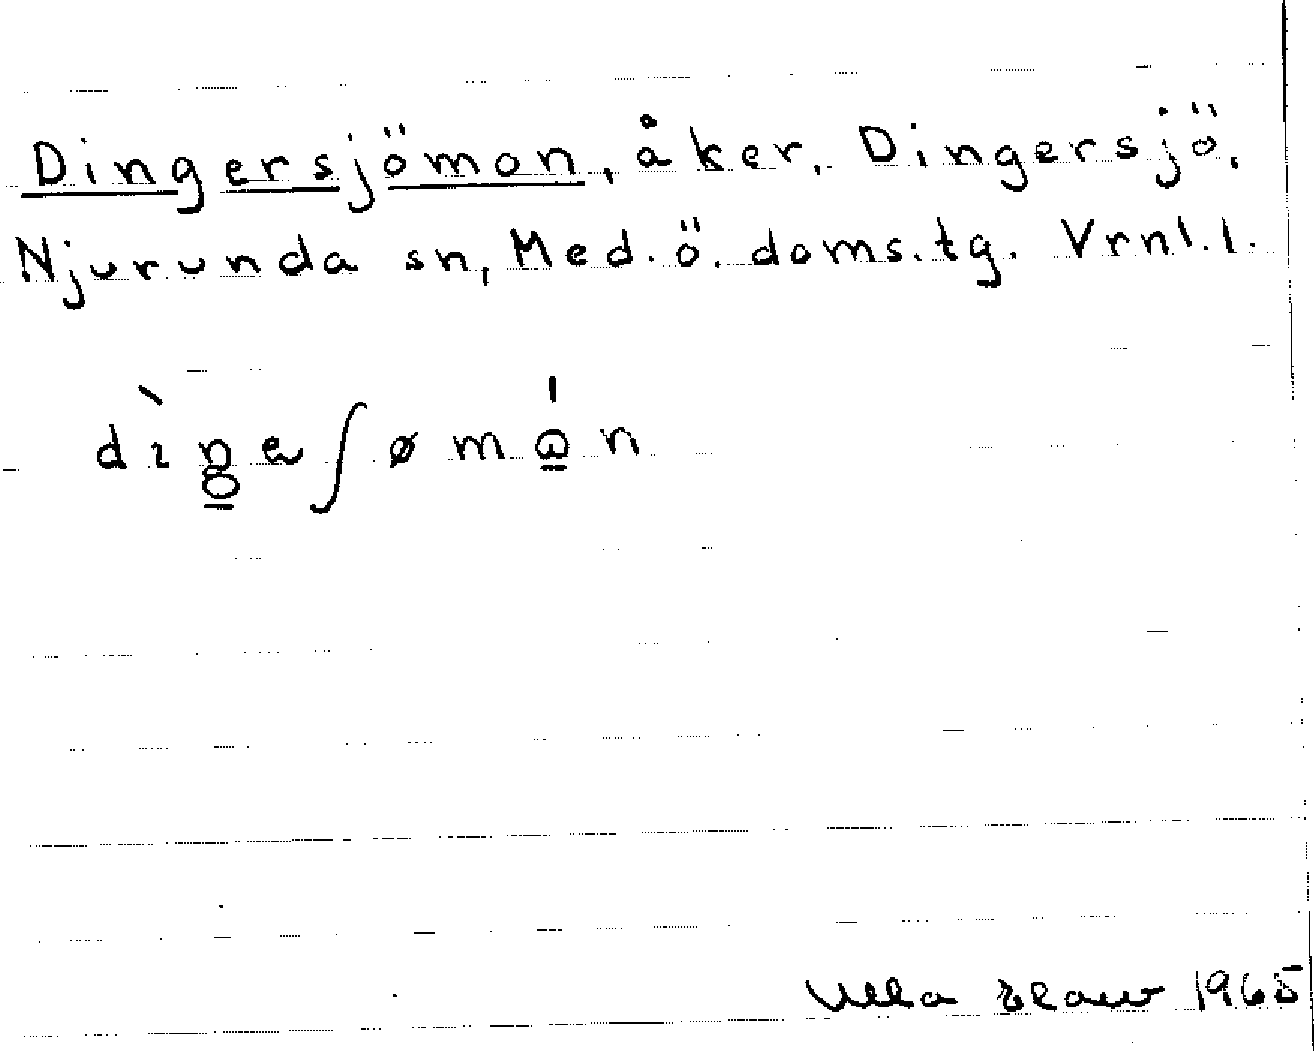 Dingersjömon, åker, Dingersjö,
Njurunda sn, Med. ö. doms.tg. Vrnl.l.
Ulla 1965